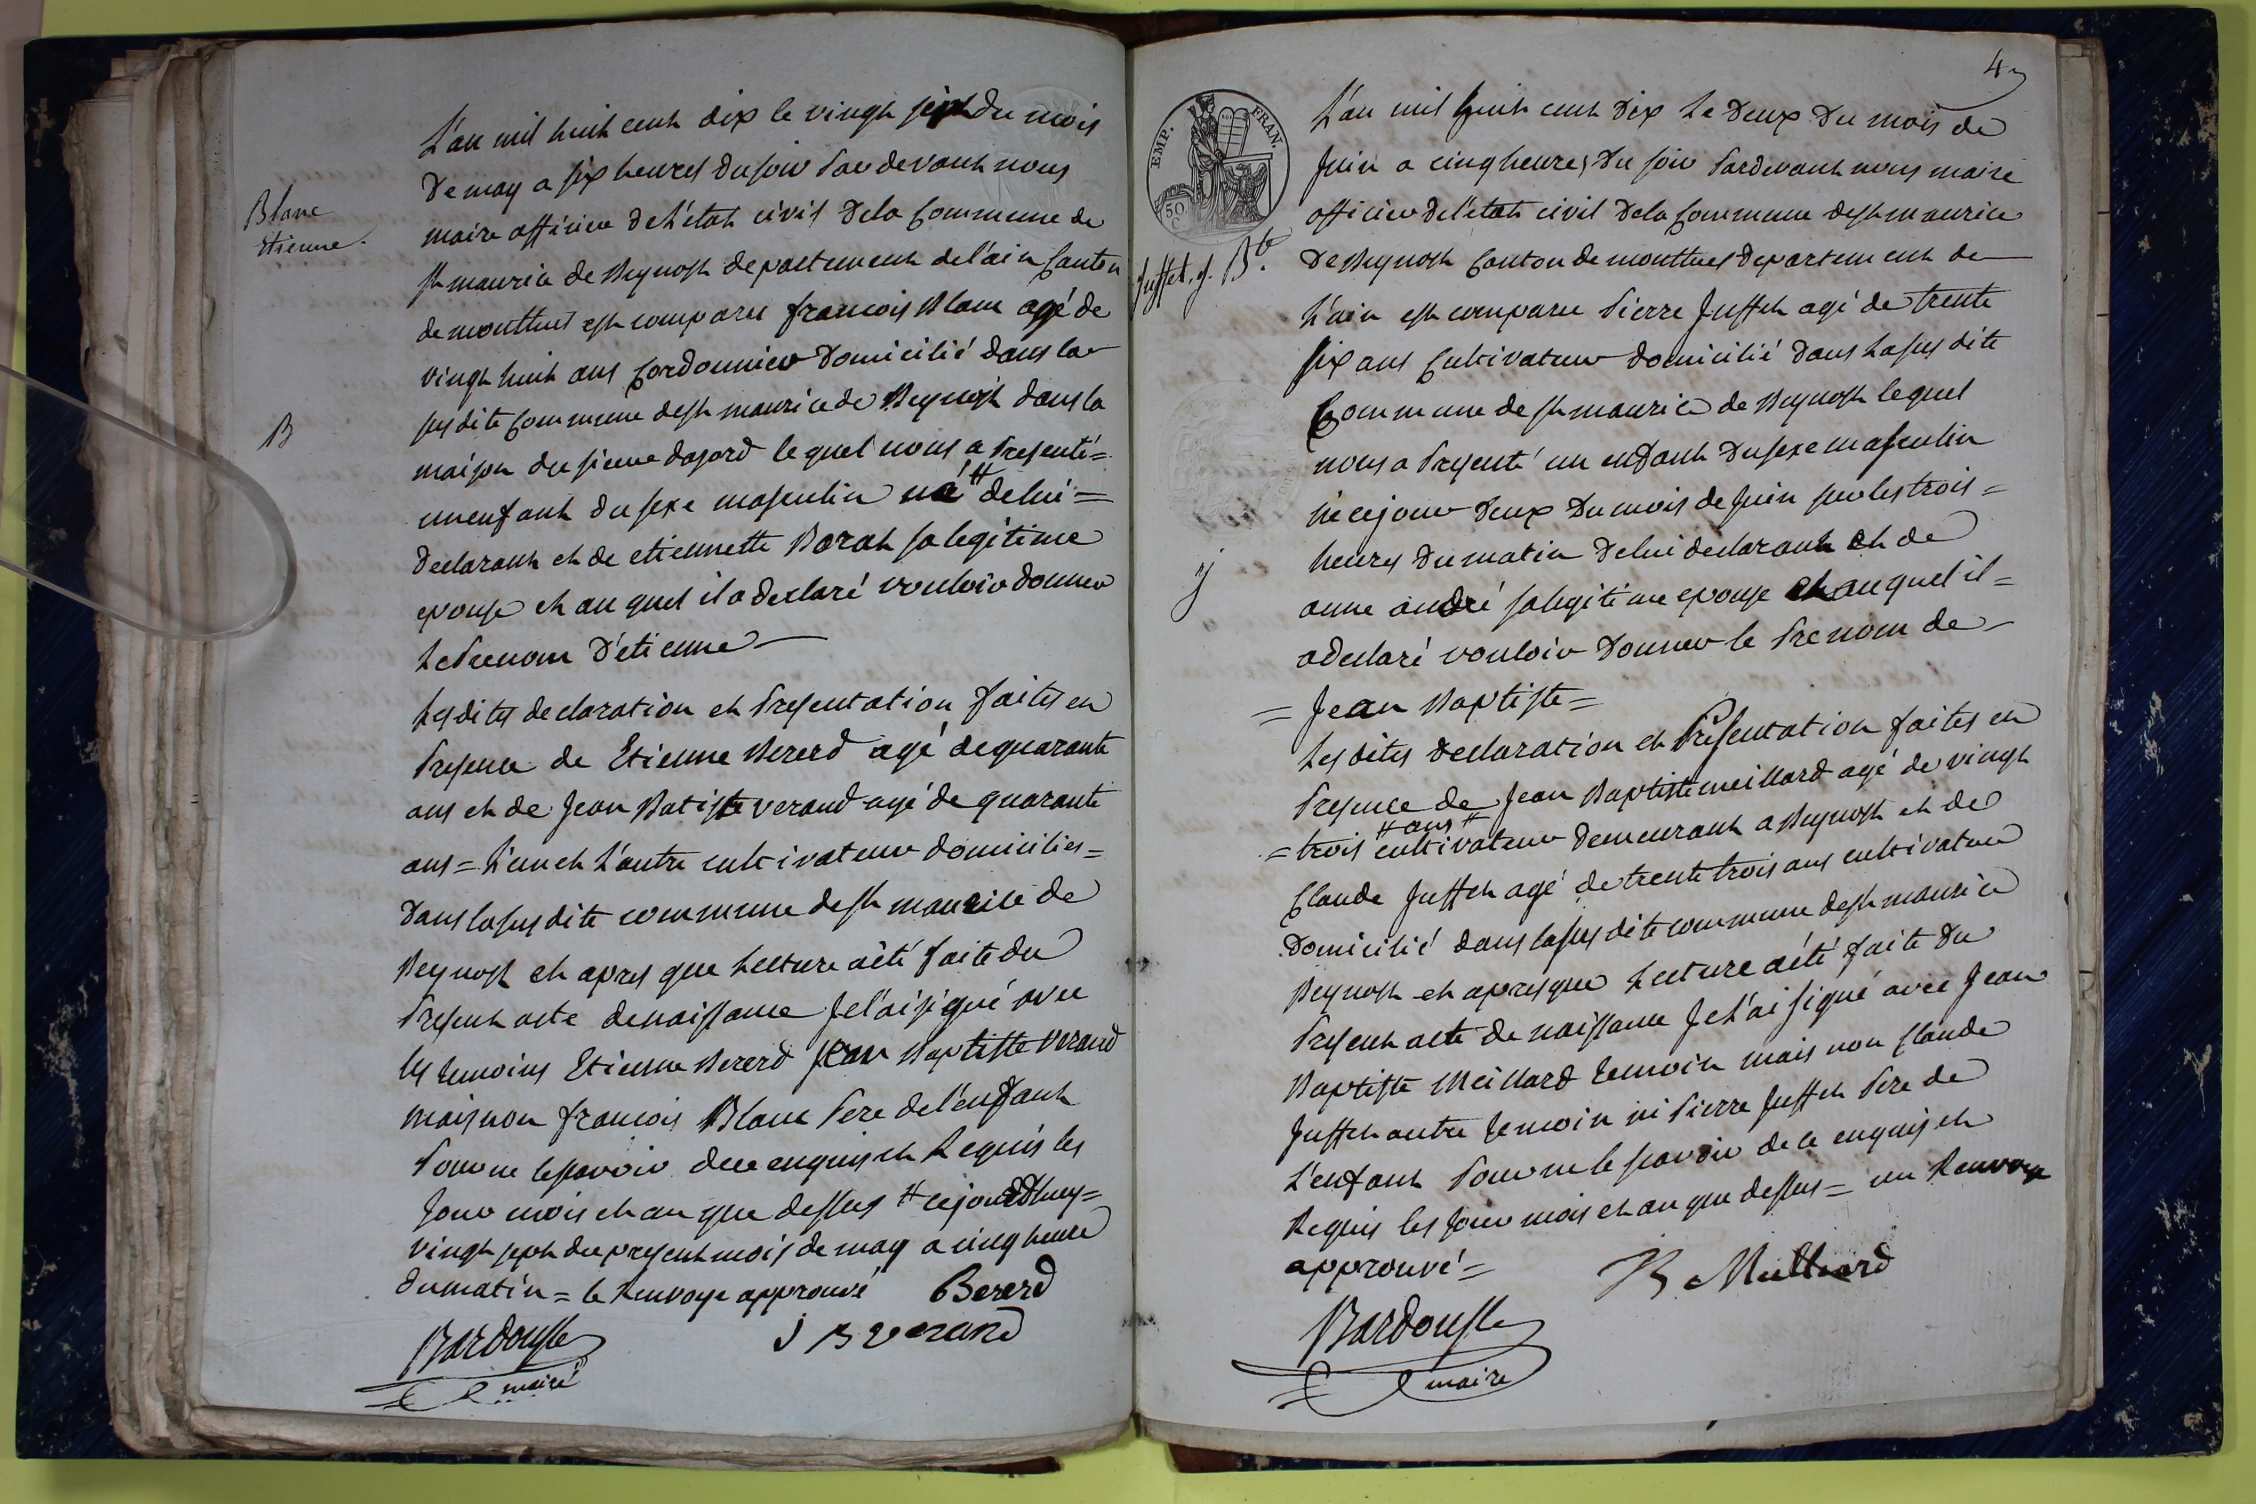 Blanc
Etienne.
B
L'an mil huit cent dix le vingt sept du mois
De may a six heures du soir Par devant nous
maire officier de L'état civil Dela Commune de
st maurice de Beynost departement de l'ain Canton
de montluel est comparu francois Blanc agé de
vingt huit ans Cordonnier Domicilié dans la
susdite Commune de st maurice de Beynost dans la
maison du sieur dagord lequel nous a Presenté=
un enfant du sexe masculin né # de lui=
Declarant et de etiennette Barat sa legitime
epouse et au quel il a declaré vouloir donner
Le Prenom D'étienne
Lesdites declaration et Presentation faites en
Presence de Etienne Bererd agé de quarante
ans et de Jean Batiste verand agé de quarante
ans = L'un et L'autre cultivateur domiciliés=
Dans la susdite commune de st maurice de
Beynost et apres que Lecture a été faite du
Present acte de naissance Je l'ai signé avec
les temoins Etienne Bererd Jean Baptiste Verand
mais non francois Blanc Pere de l'enfant
Pour ne le savoir de ce enquis et Requis les
Jour mois et an que dessus # cejourdhuy=
vingt sept du present mois de may a cinq heure
du matin = le Renvoye approuvé Bererd
Bardousse J B verand
maire
4
EMP. FRAN.
50
C
Juffet. J. Bte.
j
L'an mil huit cent Dix Le Deux Du mois de
Juin a cinq heures Du soir Pardevant nous maire
officier de l'état civil Dela Commune de st maurice
De Beynost Canton de montluel departement de
L'ain est comparu Pierre Juffet agé de trente
six ans Cultivateur domicilié dans La sus dite
Commune de st maurice de Beynost lequel
nous a Presenté un enfant Du sexe masculin
né ce jour Deux Du mois de Juin sur les trois=
heures Du matin De lui declarant et de
anne andré sa legitime epouse et au quel il=
a declaré vouloir Donner le Prenom de
= Jean Baptiste=
Les dites declaration et Présentation faites en
Presence de Jean Baptiste meillard agé de vingt
# ans #
= trois cultivateur Demeurant a Beynost et de
Claude Juffet agé de trente trois ans cultivateur
Domicilié dans la sus dite commune de st maurice
Beynost et apres que Lecture a été faite Du
Present acte de naissance Je L'ai signé avec Jean
Baptiste Meillard temoin mais non Claude
Juffet autre temoin ni Pierre Juffet Pere de
L'enfant Pour ne le savoir de ce enquis et
Requis les Jour mois et an que dessus = un Renvoye
approuvé=
B Meilliard
Bardousse
maire